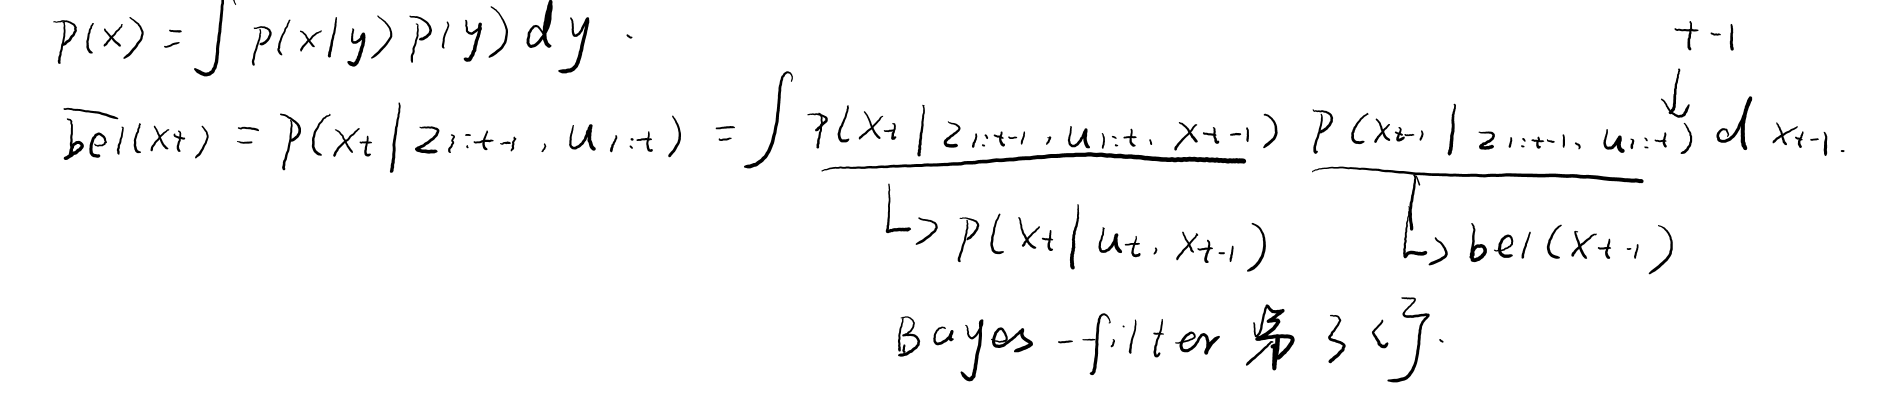 p(x) = ∫ p(x|y) p(y) dy .
t-1
↓
bel̅(xₜ) = p(xₜ | z₁:ₜ₋₁, u₁:ₜ) = ∫ p(xₜ | z₁:ₜ₋₁, u₁:ₜ, xₜ₋₁) p(xₜ₋₁ | z₁:ₜ₋₁, u₁:ₜ) d xₜ₋₁.
↳ p(xₜ | uₜ, xₜ₋₁) ↳ bel(xₜ₋₁)
Bayes-filter 第3行.